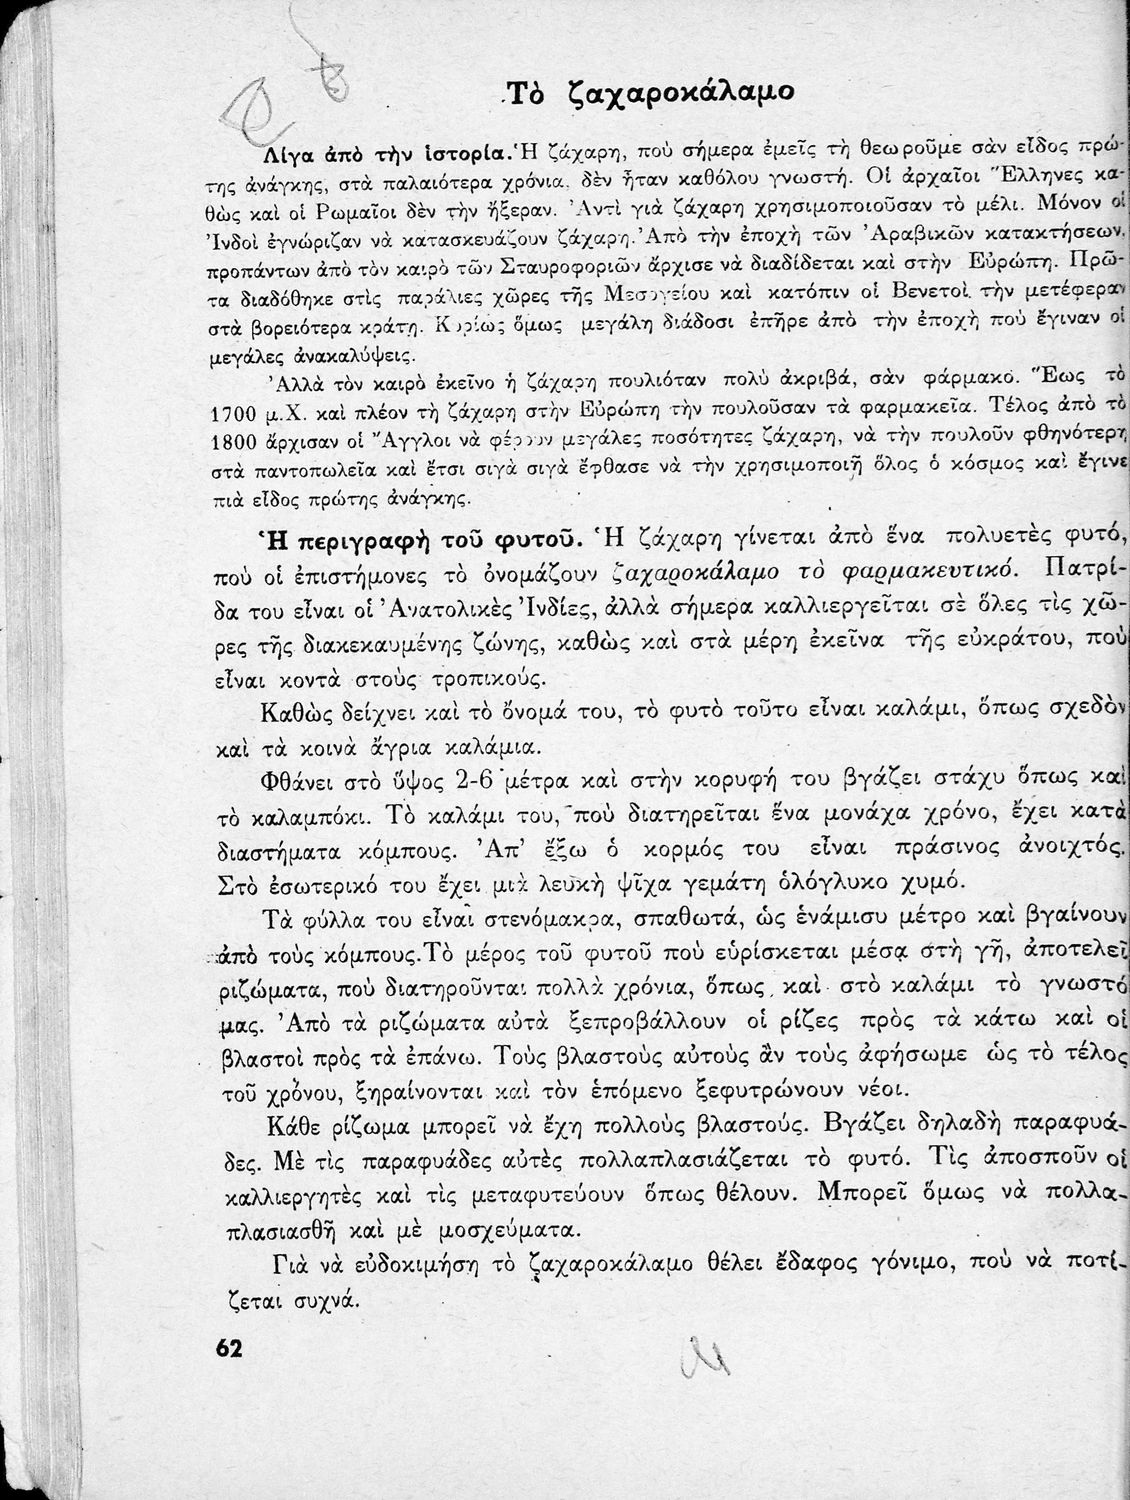 Τὸ ζαχαροκάλαμο
Λίγα ἀπὸ τὴν ἱστορία. Ἡ ζάχαρη, ποὺ σήμερα ἐμεῖς τὴ θεωροῦμε σὰν εἶδος πρώ-
της ἀνάγκης, στὰ παλαιότερα χρόνια, δὲν ἦταν καθόλου γνωστή. Οἱ ἀρχαῖοι Ἕλληνες κα-
θὼς καὶ οἱ Ρωμαῖοι δὲν τὴν ἤξεραν. Ἀντὶ γιὰ ζάχαρη χρησιμοποιοῦσαν τὸ μέλι. Μόνον οἱ
Ἰνδοὶ ἐγνώριζαν νὰ κατασκευάζουν ζάχαρη. Ἀπὸ τὴν ἐποχὴ τῶν Ἀραβικῶν κατακτήσεων,
προπάντων ἀπὸ τὸν καιρὸ τῶν Σταυροφοριῶν ἄρχισε νὰ διαδίδεται καὶ στὴν Εὐρώπη. Πρῶ-
τα διαδόθηκε στὶς παράλιες χῶρες τῆς Μεσογείου καὶ κατόπιν οἱ Βενετοὶ τὴν μετέφεραν
στὰ βορειότερα κράτη. Κυρίως ὅμως μεγάλη διάδοσι ἐπῆρε ἀπὸ τὴν ἐποχὴ ποὺ ἔγιναν οἱ
μεγάλες ἀνακαλύψεις.
Ἀλλὰ τὸν καιρὸ ἐκεῖνο ἡ ζάχαρη πουλιόταν πολὺ ἀκριβά, σὰν φάρμακο. Ἕως τὸ
1700 μ.Χ. καὶ πλέον τὴ ζάχαρη στὴν Εὐρώπη τὴν πουλοῦσαν τὰ φαρμακεῖα. Τέλος ἀπὸ τὸ
1800 ἄρχισαν οἱ Ἄγγλοι νὰ φέρουν μεγάλες ποσότητες ζάχαρη, νὰ τὴν πουλοῦν φθηνότερη
στὰ παντοπωλεῖα καὶ ἔτσι σιγὰ σιγὰ ἔφθασε νὰ τὴν χρησιμοποιῇ ὅλος ὁ κόσμος καὶ ἔγινε
πιὰ εἶδος πρώτης ἀνάγκης.
Ἡ περιγραφὴ τοῦ φυτοῦ. Ἡ ζάχαρη γίνεται ἀπὸ ἕνα πολυετὲς φυτό,
ποὺ οἱ ἐπιστήμονες τὸ ὀνομάζουν ζαχαροκάλαμο τὸ φαρμακευτικό. Πατρί-
δα του εἶναι οἱ Ἀνατολικὲς Ἰνδίες, ἀλλὰ σήμερα καλλιεργεῖται σὲ ὅλες τὶς χῶ-
ρες τῆς διακεκαυμένης ζώνης, καθὼς καὶ στὰ μέρη ἐκεῖνα τῆς εὐκράτου, ποὺ
εἶναι κοντὰ στοὺς τροπικούς.
Καθὼς δείχνει καὶ τὸ ὄνομά του, τὸ φυτὸ τοῦτο εἶναι καλάμι, ὅπως σχεδὸν
καὶ τὰ κοινὰ ἄγρια καλάμια.
Φθάνει στὸ ὕψος 2-6 μέτρα καὶ στὴν κορυφή του βγάζει στάχυ ὅπως καὶ
τὸ καλαμπόκι. Τὸ καλάμι του, ποὺ διατηρεῖται ἕνα μονάχα χρόνο, ἔχει κατὰ
διαστήματα κόμπους. Ἀπ' ἔξω ὁ κορμός του εἶναι πράσινος ἀνοιχτός.
Στὸ ἐσωτερικό του ἔχει μιὰ λευκὴ ψῖχα γεμάτη ὁλόγλυκο χυμό.
Τὰ φύλλα του εἶναι στενόμακρα, σπαθωτά, ὡς ἑνάμισυ μέτρο καὶ βγαίνουν
ἀπὸ τοὺς κόμπους. Τὸ μέρος τοῦ φυτοῦ ποὺ εὑρίσκεται μέσα στὴ γῆ, ἀποτελεῖ
ριζώματα, ποὺ διατηροῦνται πολλὰ χρόνια, ὅπως καὶ στὸ καλάμι τὸ γνωστό
μας. Ἀπὸ τὰ ριζώματα αὐτὰ ξεπροβάλλουν οἱ ρίζες πρὸς τὰ κάτω καὶ οἱ
βλαστοὶ πρὸς τὰ ἐπάνω. Τοὺς βλαστοὺς αὐτοὺς ἂν τοὺς ἀφήσωμε ὡς τὸ τέλος
τοῦ χρόνου, ξηραίνονται καὶ τὸν ἑπόμενο ξεφυτρώνουν νέοι.
Κάθε ρίζωμα μπορεῖ νὰ ἔχη πολλοὺς βλαστούς. Βγάζει δηλαδὴ παραφυά-
δες. Μὲ τὶς παραφυάδες αὐτὲς πολλαπλασιάζεται τὸ φυτό. Τὶς ἀποσποῦν οἱ
καλλιεργητὲς καὶ τὶς μεταφυτεύουν ὅπως θέλουν. Μπορεῖ ὅμως νὰ πολλα-
πλασιασθῆ καὶ μὲ μοσχεύματα.
Γιὰ νὰ εὐδοκιμήση τὸ ζαχαροκάλαμο θέλει ἔδαφος γόνιμο, ποὺ νὰ ποτί-
ζεται συχνά.
62